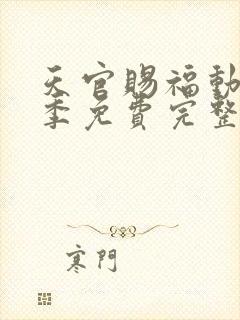 天官賜福動
季免費完整
寒門